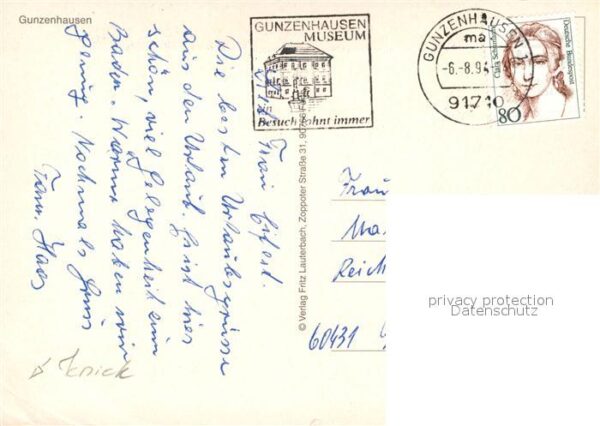 Gunzenhausen
GUNZENHAUSEN
MUSEUM
ein
Besuch lohnt immer
GUNZENHAUSEN 1
ma
-6.-8.94
91710
Deutsche Bundespost
Clara Schumann
80
© Verlag Fritz Lauterbach, Zoppoter Straße 31, 90766 F
Frau Eifert.
Die besten Urlaubsgrüsse
aus den Urlaub. Es ist hier
schön, viel Gelegenheit zum
Baden. Warm haben wir
genug. Nochmals Gruss
Fam. Haas
Frau
Reich
60431
Knick
privacy protection
Datenschutz